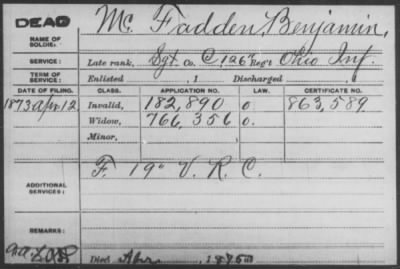 DEAD
Mc Fadden, Benjamin,
NAME OF SOLDIER:
SERVICE: Late rank, Sgt. Co. C, 126" Reg't Ohio Inf.
TERM OF SERVICE: Enlisted , 1 Discharged , 1
DATE OF FILING. CLASS. APPLICATION NO. LAW. CERTIFICATE NO.
1873 Apr. 12 Invalid, 182,890 o. 863,589
Widow, 766,356 o.
Minor,
F. 19" V. R. C.
ADDITIONAL SERVICES:
REMARKS:
Died Apr. , 1875